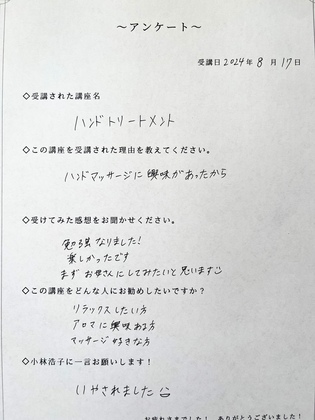 ～アンケート～
受講日2024年8月17日
◇受講された講座名
ハンドトリートメント
◇この講座を受講された理由を教えてください。
ハンドマッサージに興味があったから
◇受けてみた感想をお聞かせください。
勉強なりました!
楽しかったです
まずお母さんにしてみたいと思います
◇この講座をどんな人にお勧めしたいですか？
リラックスしたい方
アロマに興味ある方
マッサージ好きな方
◇小林浩子に一言お願いします！
いやされました
お疲れさまでした！ ありがとうございました！